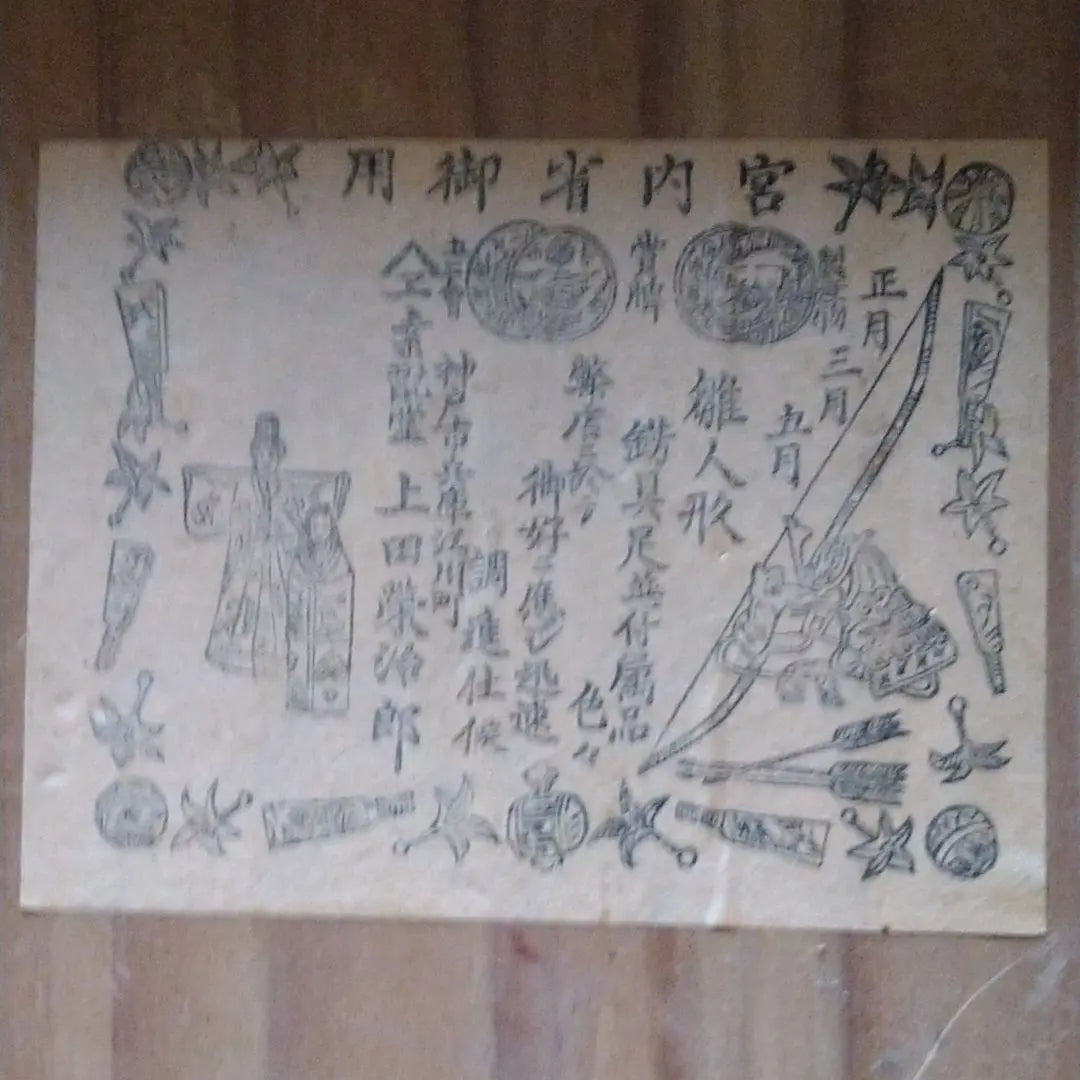 宮内省御用
正月
三月
五月
雛人形
餝具尺並仕属品
色々
弊店ニ於テ
御好ニ應じ迅速
調進仕候
賞牌
神戸市兵庫江川町
上田榮治郎